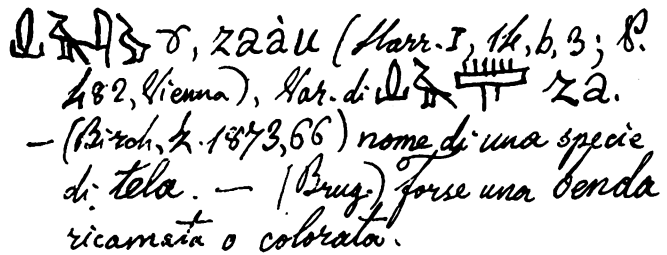 zaàu (Harr. I, 14, b, 3; P.
482, Vienna), Var. di za.
— (Birch, Z. 1873, 66) nome di una specie
di tela. — (Brug.) forse una benda
ricamata o colorata.